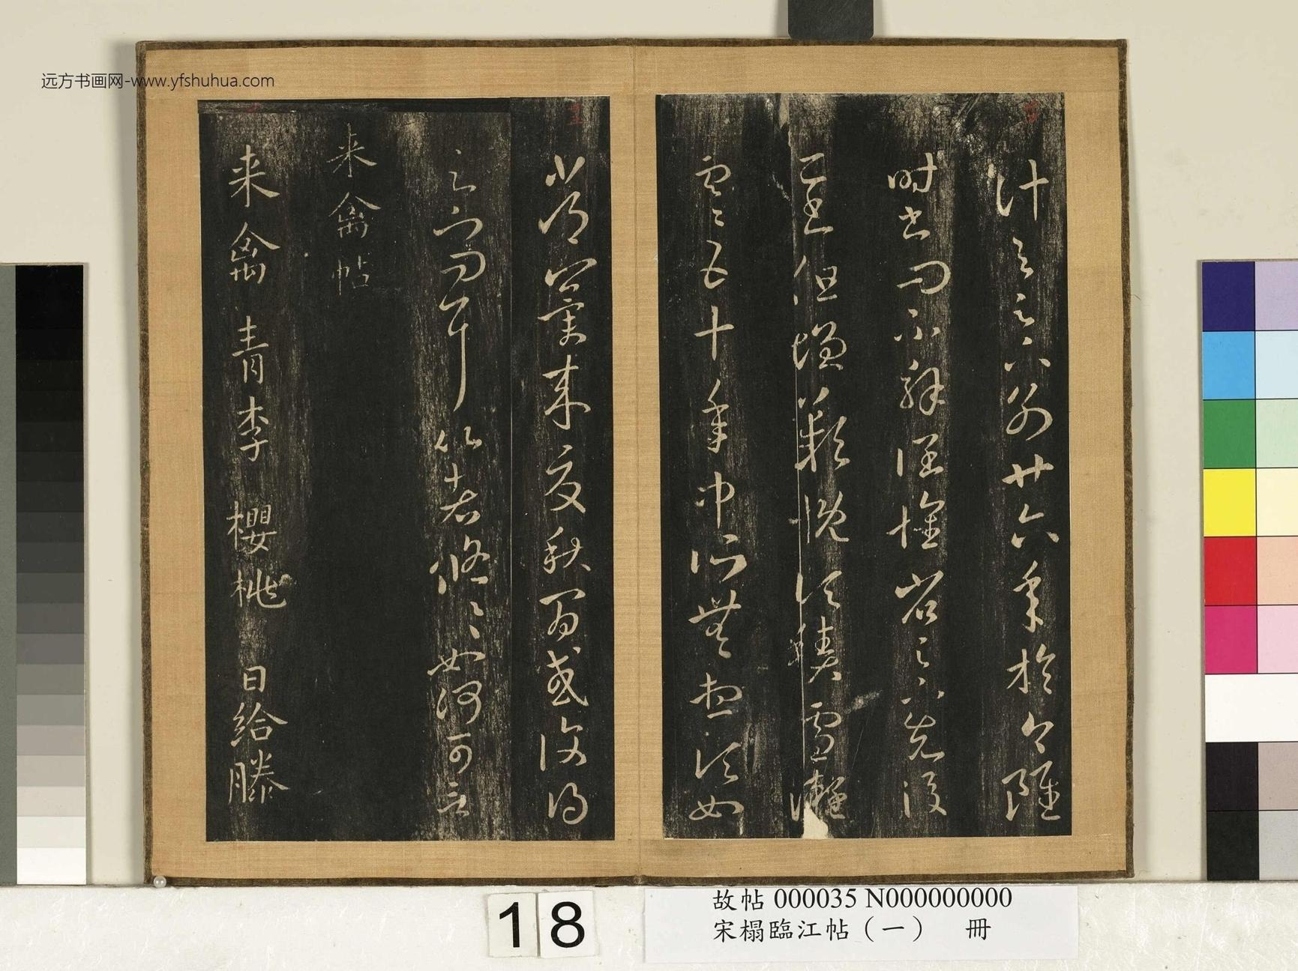 远方书画网-www.yfshuhua.com
計與足下別廿六年於今雖
時書問不解闊懷省足下先後
二書但增歎慨頃積雪凝
寒五十年中所無想頃如
常冀來夏秋間或復得
足下問耳比者悠悠如何可言
来禽帖
来禽青李櫻桃日給滕
18
故帖 000035 N000000000
宋榻臨江帖（一） 冊